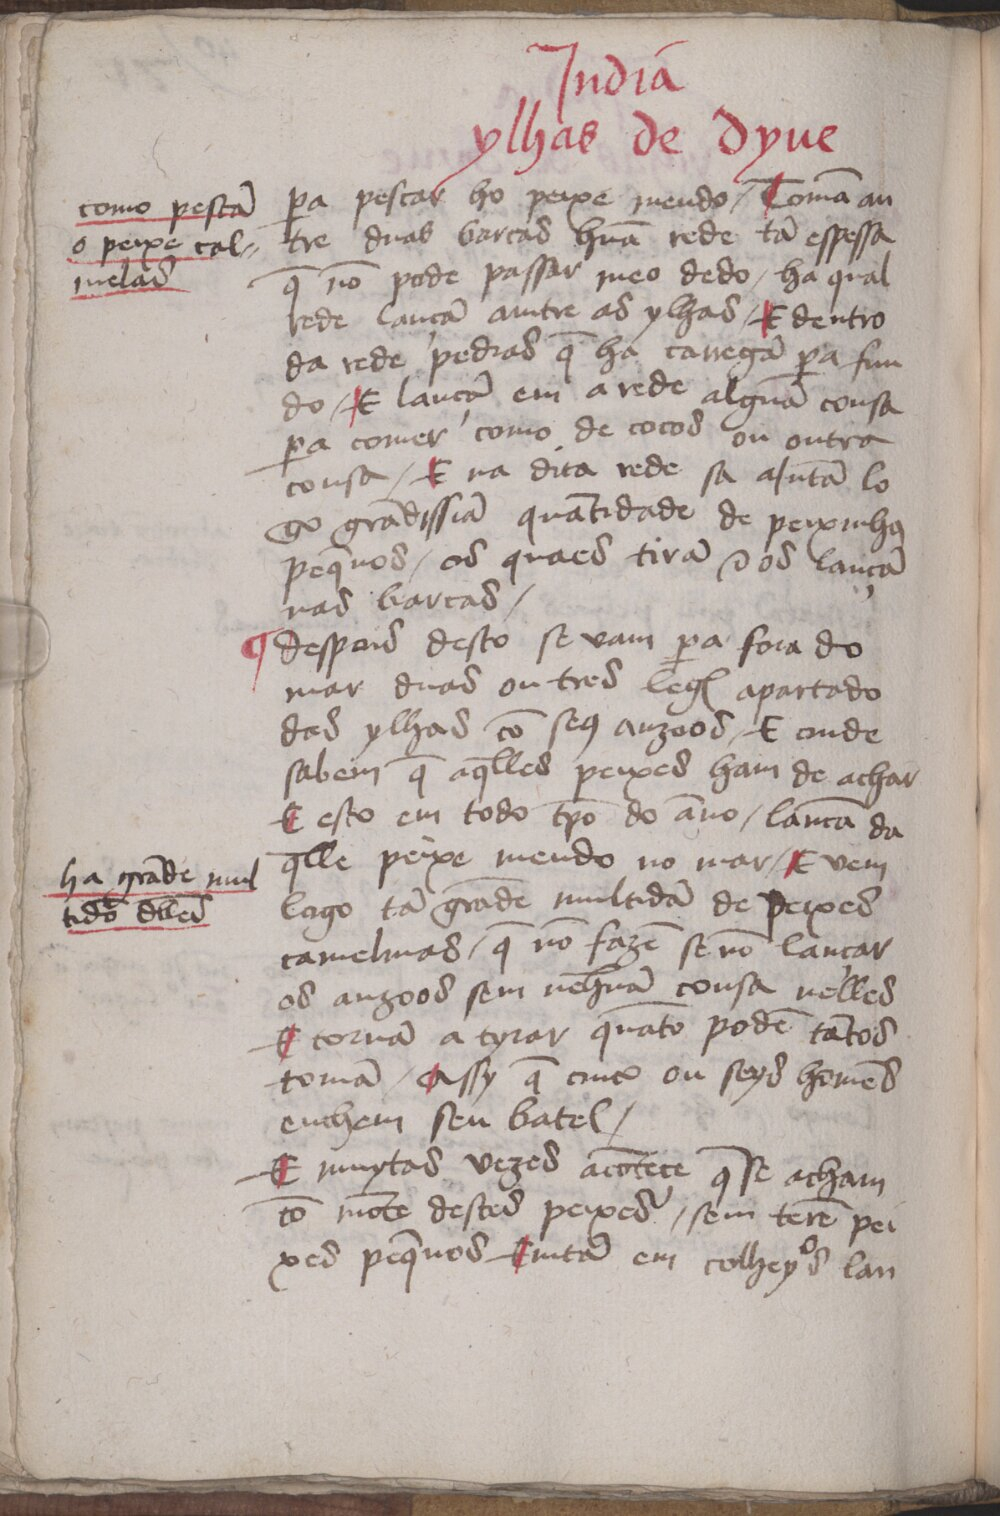 India
ylhas de dyue
como pescã
o peixe cal-
melas
pa pescar ho peixe meudo / Tomã an
tre duas barcas huã rede tã espessa
q̃ nõ pode passar meo dedo / ha qual
rede lançã antre as ylhas / E dentro
da rede pedras q̃ ha carregã pa fun
do / E lançã em a rede algũa cousa
pa comer como de cocos ou outra
cousa / E na dita rede sa ajuntã lo
go grãdissiã quãtidade de peixinhos
peq̃nos / os quaes tirã & os lançã
nas barcas /
¶ despois desto se vam pa fora do
mar duas ou tres leg apartado
das ylhas cõ seus anzoos / E onde
sabem q̃ aq̃lles peixes ham de achar
E esto em todo tpõ do ãno / lancã da
q̃lle peixe meudo no mar / E vem
ha grãde mul
tidõ dlles
logo tã grãde multidã de peixes
camelinas / q̃ nõ fazẽ se nõ lançar
os anzoos sem nẽhuã cousa nelles
E tornã a tyrar quãto podẽ tãtos
tomã / Assy q̃ cinco ou seys homẽs
enchem seu batel /
E muytas vezes acõtece q̃ se acham
cõ mõte destes peixes / sem terẽ pei
xes peq̃nos E ẽtã em colheyos lan